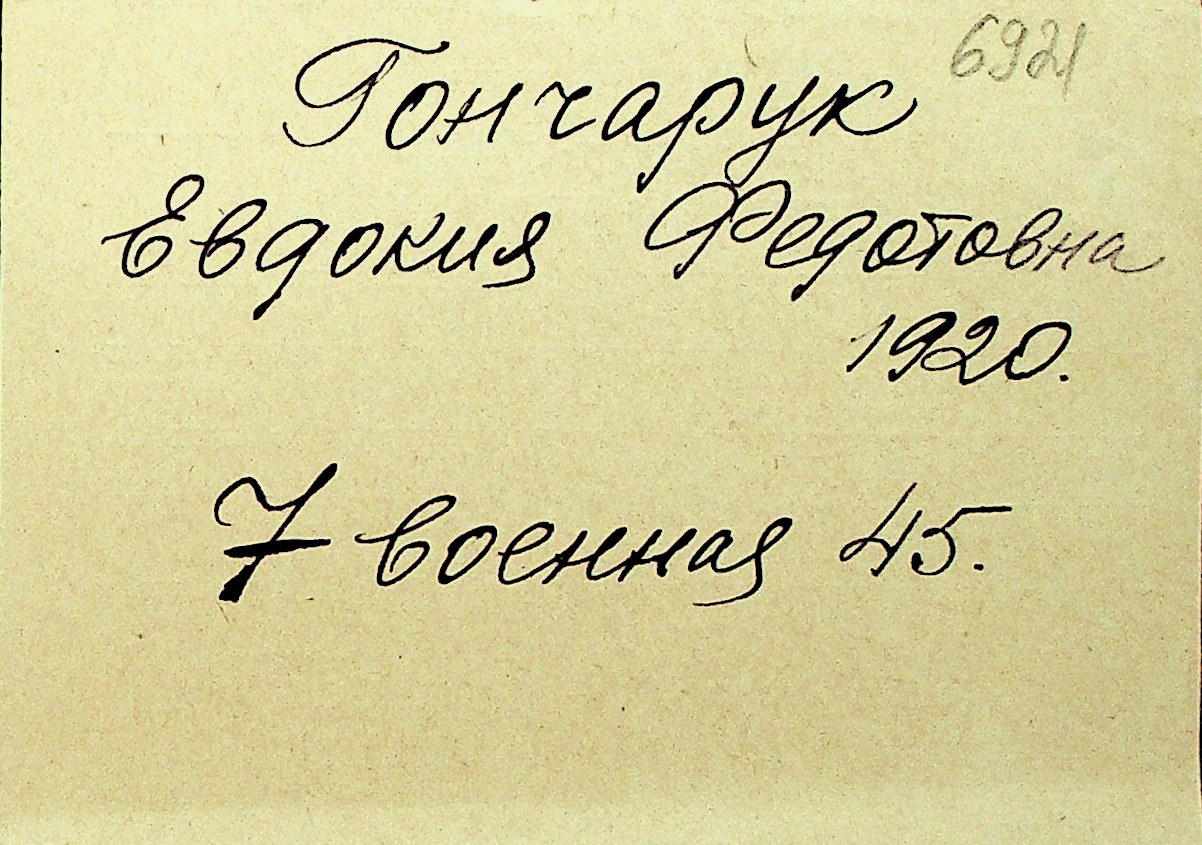 6921
Гончарук
Евдокия Федотовна
1920.
7 военная 45.